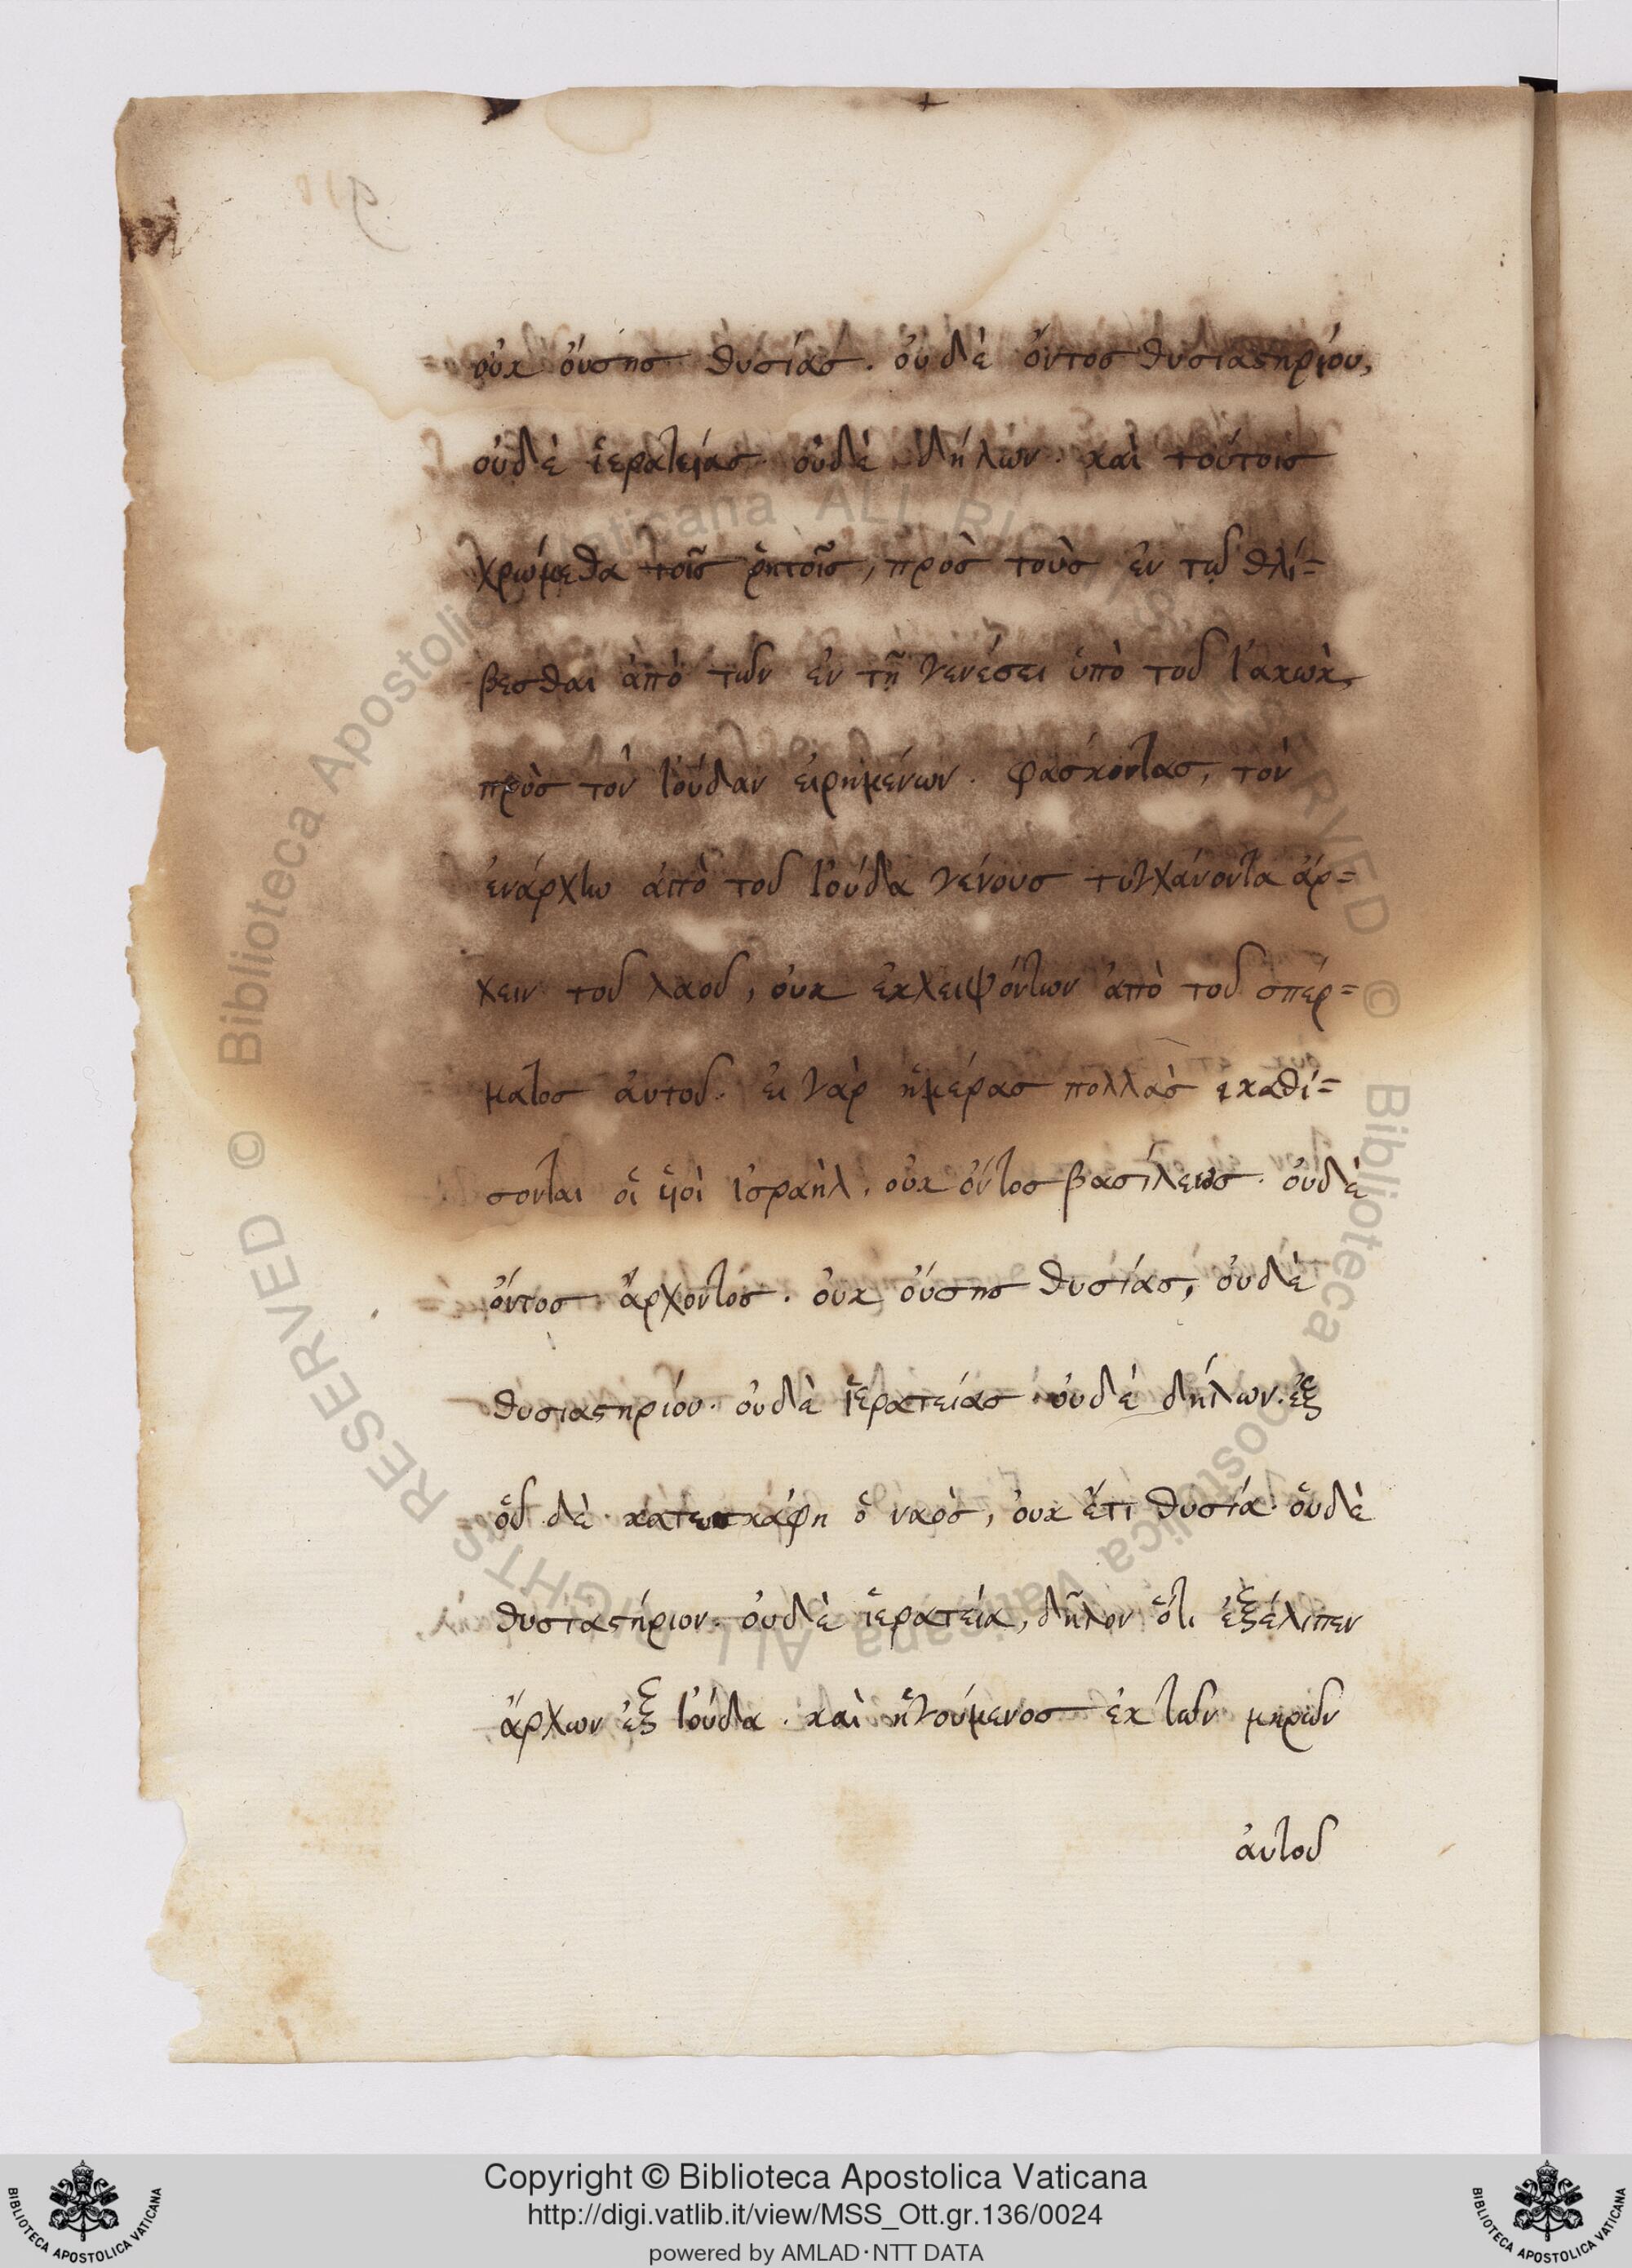 οὐκ οὔσησ θυσίασ. οὐδὲ ὄντοσ θυσιαστηρίου,
οὐδὲ ἱερατείασ. οὐδὲ δήλων. καὶ τούτοισ
χρώμεθα τοῖσ ῥητοῖσ, πρὸσ τοὺσ ἐν τῷ θλί=
βεσθαι ἀπὸ τῶν ἐν τῇ γενέσει ὑπὸ τοῦ Ἰακὼκ,
πρὸσ τὸν Ἰούδαν εἰρημένων. φάσκοντασ, τὸν
ἐνάρχω ἀπὸ τοῦ Ἰούδα γένουσ τυγχάνοντα ἄρ=
χειν τοῦ λαοῦ, οὐκ ἐκλειψόντων ἀπὸ τοῦ σπέρ=
ματοσ ἀυτοῦ. ἐι γὰρ ἡμέρασ πολλὰσ ἐκαθί=
σονται οἱ ὑοὶ ἰσραὴλ. οὐκ ὄντοσ βασίλεωσ. ὀυδὲ
ὄντοσ ἄρχοντοσ. ὀυκ ὀύσησ θυσίασ, ὀυδὲ
θυσιαστηρίου. ὀυδὲ ἱερατείασ. ὀυδὲ δήλων. ἐξ
ὁῦ δὲ κατεσκάφη ὁ ναὸσ, ὀυκ ἔτι θυσία. ὀυδὲ
θυσιαστήριον. ὀυδὲ ἱερατεία, δῆλον ὅτι ἐξέλιπεν
ἄρχων ἐξ Ἰούδα. καὶ ἡγούμενοσ ἐκ τῶν μηρῶν
ἀυτοῦ
Copyright © Biblioteca Apostolica Vaticana
http://digi.vatlib.it/view/MSS_Ott.gr.136/0024
powered by AMLAD·NTT DATA
BIBLIOTECA APOSTOLICA VATICANA
BIBLIOTECA APOSTOLICA VATICANA
© Biblioteca Apostolica Vaticana ALL RIGHTS RESERVED © Biblioteca Apostolica Vaticana ALL RIGHTS RESERVED